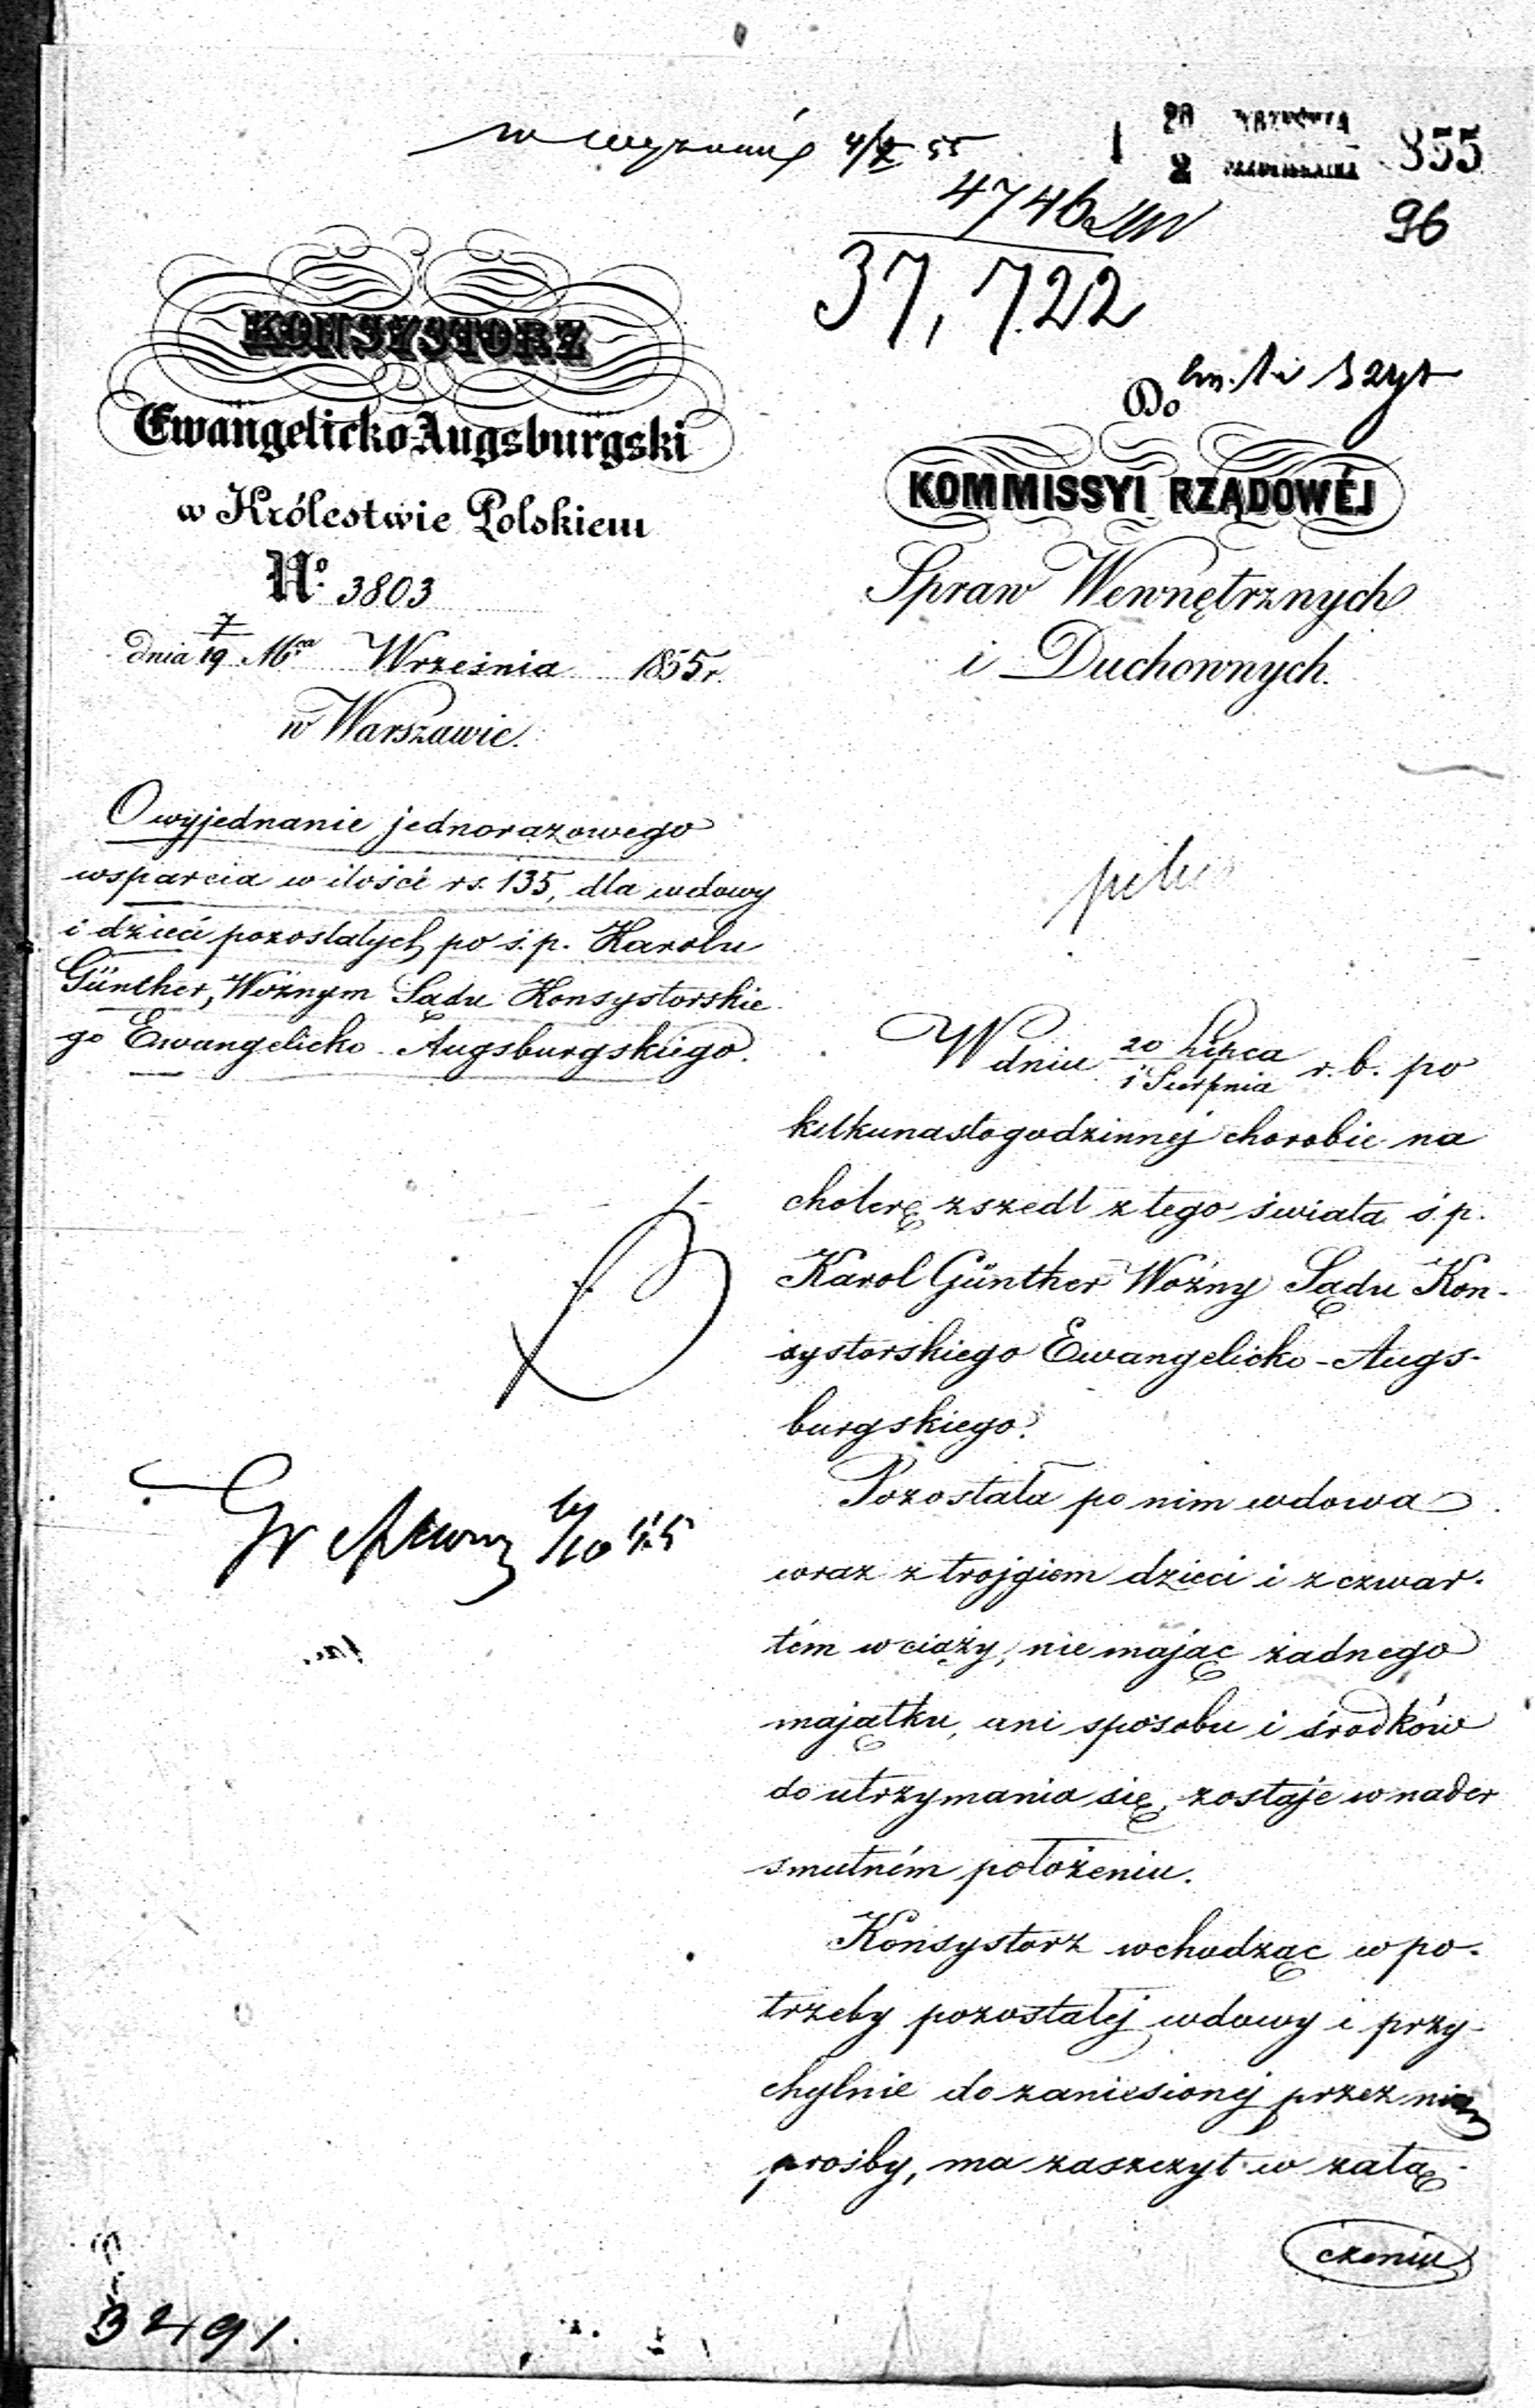 4/X 55
20 WRZEŚNIA
2 PAŹDZIERNIKA
1855
4746
96
37,722
KONSYSTORZ
Ewangelicko-Augsburgski
w Królestwie Polskiem
Nº 3803
dnia 7/19 Mca Września 1855 r.
w Warszawie.
O wyjednanie jednorazowego
wsparcia w ilości rs. 135, dla wdowy
i dzieci pozostałych po ś.p. Karolu
Günther, Woźnym Sądu Konsystorskie
go Ewangelicko-Augsburgskiego.
Do
KOMMISSYI RZĄDOWÉJ
Spraw Wewnętrznych
i Duchownych.
pilno
W dniu 20 Lipca / 1 Sierpnia r. b. po
kilkunastogodzinnej chorobie na
cholerę zszedł z tego świata ś.p.
Karol Günther Woźny Sądu Kon-
systorskiego Ewangelicko-Augs-
burgskiego.
Pozostała po nim wdowa
wraz z trojgiem dzieci i z czwar-
tém w ciąży, nie mając żadnego
majątku, ani sposobu i środków
do utrzymania się, zostaje w nader
smutném położeniu.
Konsystorz wchodząc w po-
trzeby pozostałej wdowy i przy-
chylnie do zaniesionej przez nią
prośby, ma zaszczyt w załą-
czeniu
10 55
3491.